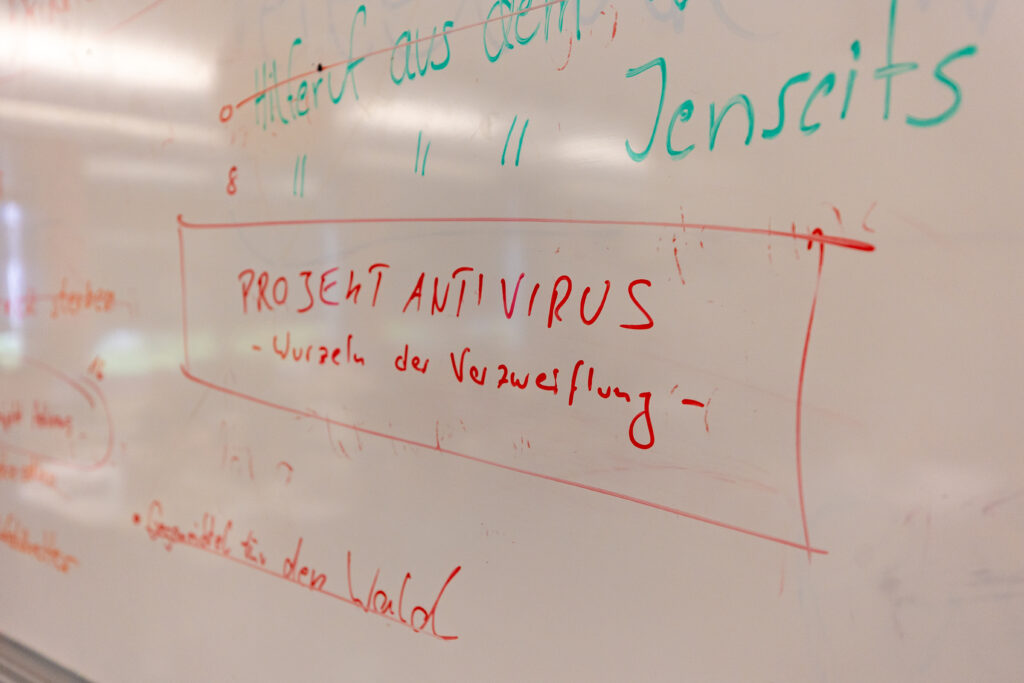 0 Hilferuf aus dem
Jenseits
8 " " "
PROJEKT ANTIVIRUS
- Wurzeln der Verzweiflung -
• Gegenmittel für den Wald
sterben
16